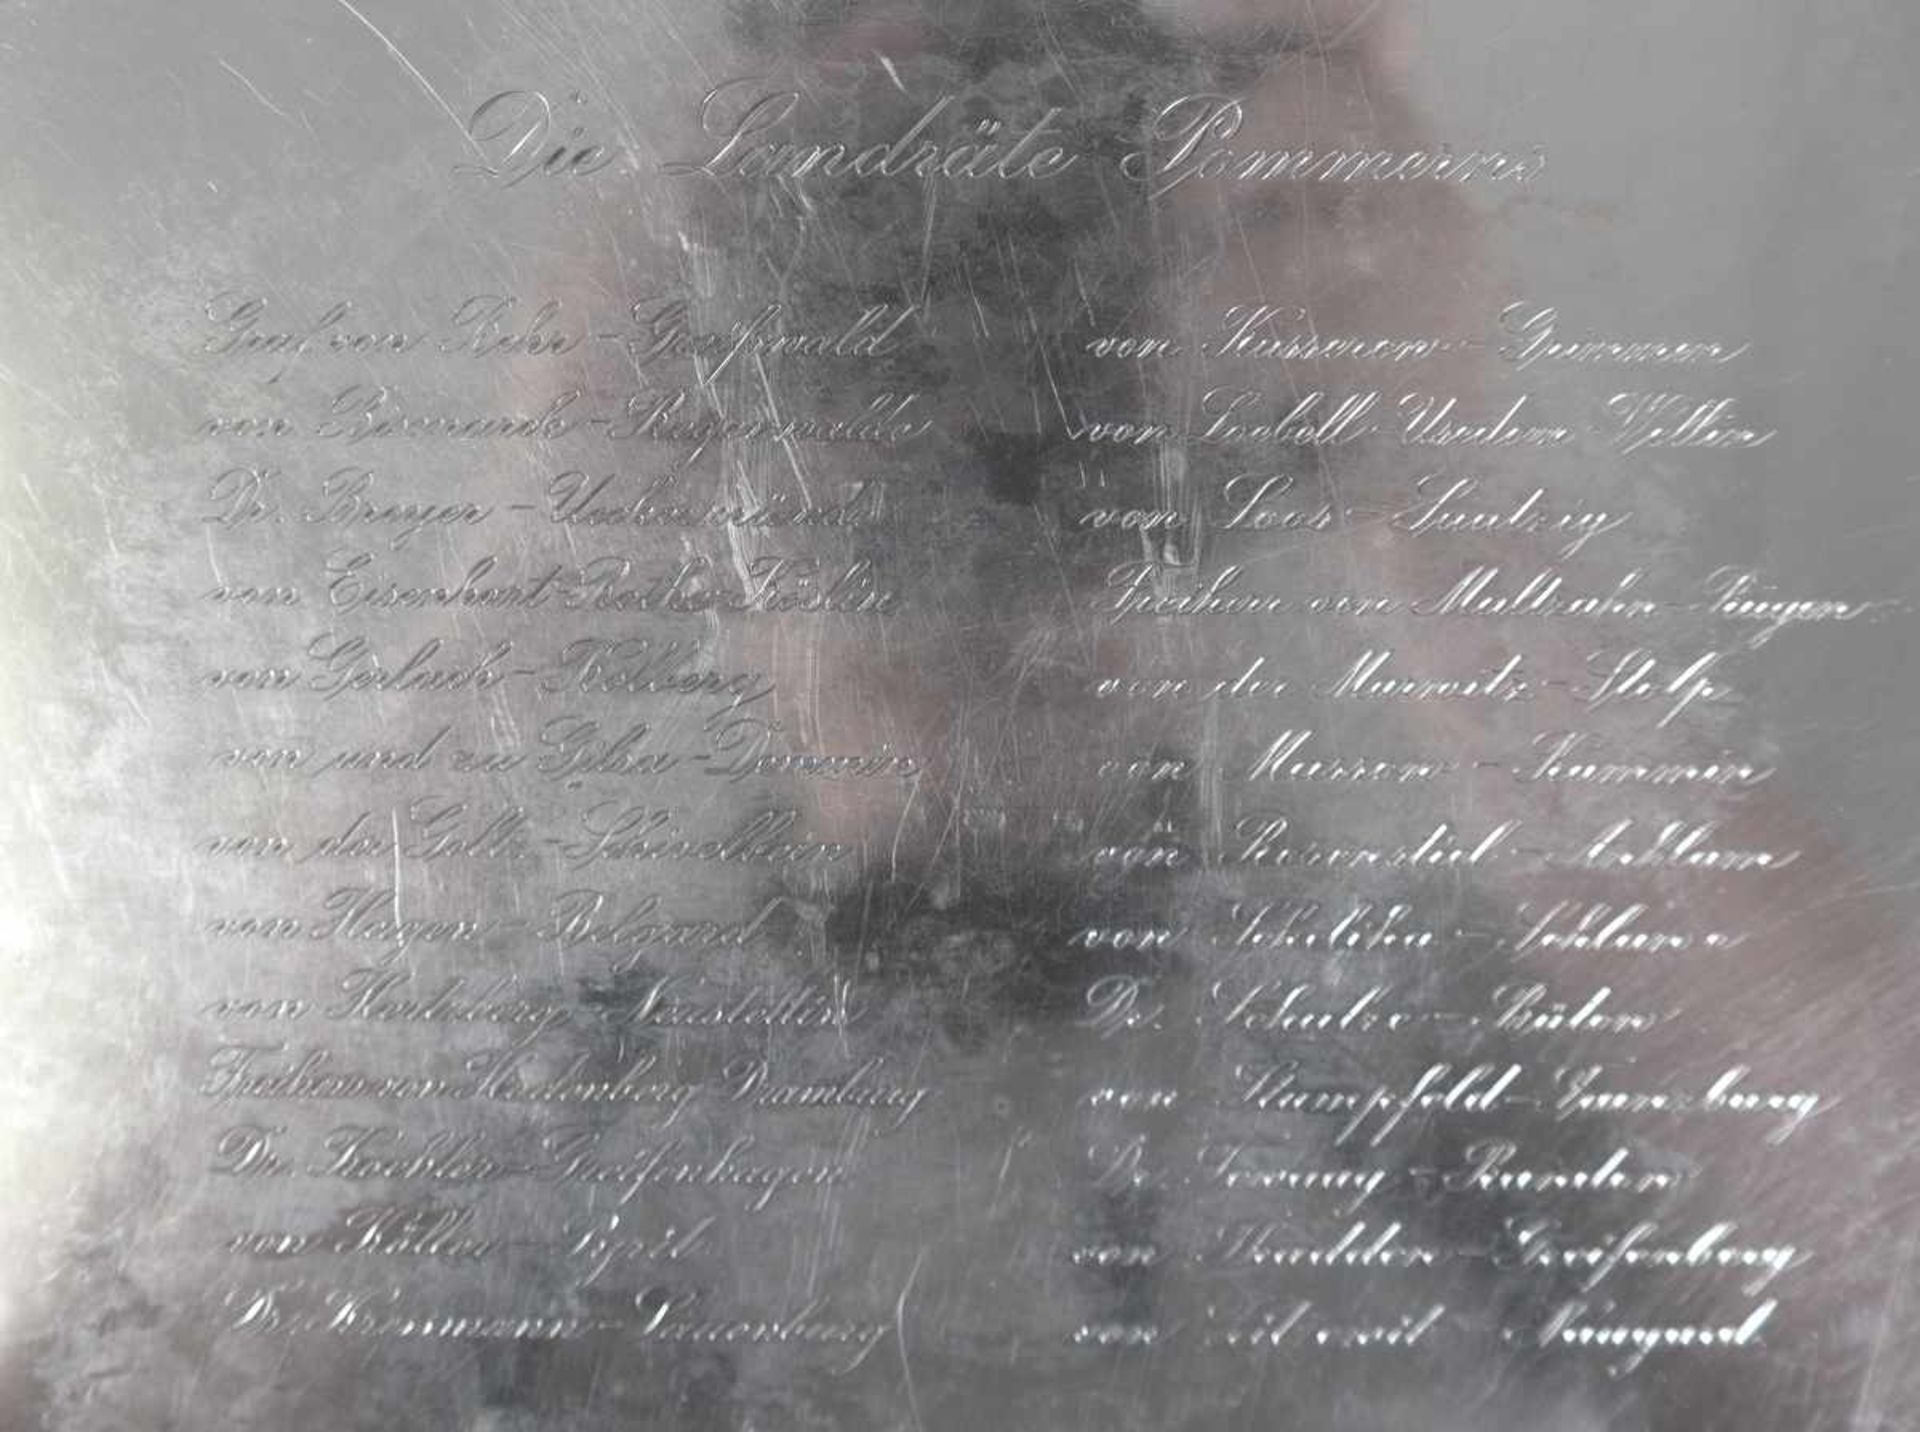 Die Landräte Pommerns
Graf von Behr - Greifswald
von Bismarck - Regenwalde
Dr. Breyer - Ueckermünde
von Eisenhart-Rothe - Köslin
von Gerlach - Kolberg
von und zu Gilsa - Demmin
von der Goltz - Schivelbein
von Hagen - Belgard
von Hertzberg - Neustettin
Freiherr von Dramburg
Dr. Koehler - Greifenhagen
von Köller - Pyritz
Dr. Kreßmann - Lauenburg
von Kussrow - Grimmen
von Loebell - Usedom Wollin
von Loos - Saatzig
Freiherr von Maltzahn - Rügen
von der Marwitz - Stolp
von Massow - Kammin
von Rosenstiel - Anklam
von - Schlawe
Dr. Schulze - Bütow
von Stumpfeld - Franzburg
Dr. - Randow
von Thadden - Greifenberg
von - Naugard